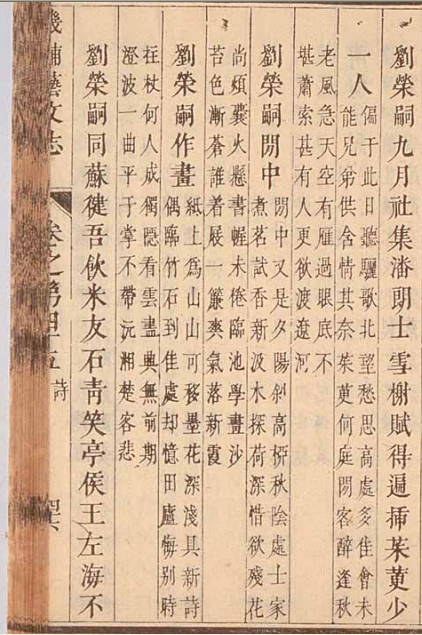 劉榮嗣九月社集潘朗士雪榭賦得遍揷茱萸少
一人
偏于此日聽驪歌北望愁思高處多佳會未
能兄弟供舍情其奈茱萸何庭閒客醉逢秋
老風急天空有雁過眼底不
堪蕭索甚有人更欲渡遼河
劉榮嗣閒中
閒中又是夕陽斜高桺秋陰處士家
煮茗試香新汲水探荷深惜欲殘花
尚頰囊火懸書幄未倦臨池學畫沙
苔色漸蒼誰着屐一簾爽氣落新霞
劉榮嗣作畫
紙上爲山山可移墨花深淺具新詩
偶臨竹石到佳處却憶田廬悔别時
拄杖何人成獨隱看雲盡典無前期
澄波一曲平于掌不帶沅湘楚客悲
劉榮嗣同蘇健吾飲米友石靑笑亭侯王左海不
畿輔藝文志
卷之第四十五
詩